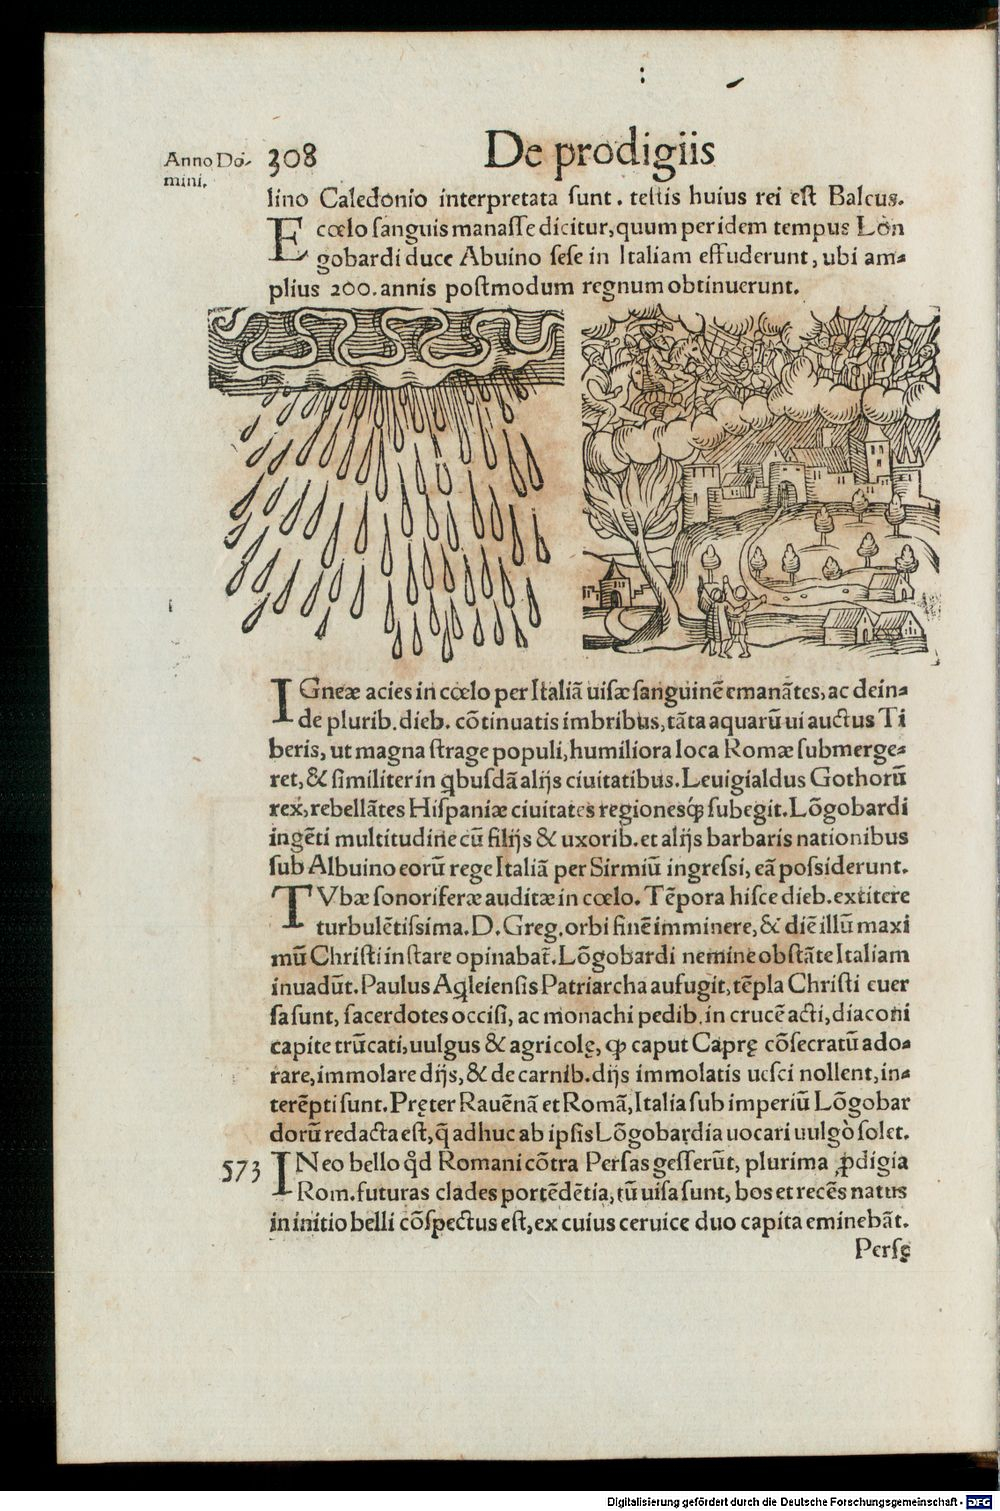 Anno Do-
mini.
308
De prodigiis
lino Caledonio interpretata sunt. testis huius rei est Baleus.
E cœlo sanguis manasse dicitur, quum per idem tempus Lon
gobardi duce Abuino sese in Italiam effuderunt, ubi am-
plius 200. annis postmodum regnum obtinuerunt.
IGneæ acies in cœlo per Italiã uisæ sanguinẽ emanãtes, ac dein-
de plurib. dieb. cõtinuatis imbribus, tãta aquarũ ui auctus Ti
beris, ut magna strage populi, humiliora loca Romæ submerge-
ret, & similiter in qbusdã alijs ciuitatibus. Leuigialdus Gothorũ
rex, rebellãtes Hispaniæ ciuitates regionesq́; subegit. Lõgobardi
ingẽti multitudine cũ filijs & uxorib. et alijs barbaris nationibus
sub Albuino eorũ rege Italiã per Sirmiũ ingressi, eã possiderunt.
TVbæ sonoriferæ auditæ in cœlo. Tẽpora hisce dieb. extitere
turbulẽtissima. D. Greg. orbi finẽ imminere, & diẽ illũ maxi
mũ Christi instare opinabat̃. Lõgobardi nemine obstãte Italiam
inuadũt. Paulus Aq̃leiensis Patriarcha aufugit, tẽpla Christi euer
sa sunt, sacerdotes occisi, ac monachi pedib. in crucẽ acti, diaconi
capite trũcati, uulgus & agricolę, ꝙ caput Caprę cõsecratũ ado-
rare, immolare dijs, & de carnib. dijs immolatis uesci nollent, in-
terẽpti sunt. Pręter Rauẽnã et Romã, Italia sub imperiũ Lõgobar
dorũ redacta est, q̃ adhuc ab ipsis Lõgobardia uocari uulgò solet.
573
IN eo bello qd̃ Romani cõtra Persas gesserũt, plurima ꝓdigia
Rom. futuras clades portẽdẽtia, tũ uisa sunt, bos et recẽs natus
in initio belli cõspectus est, ex cuius ceruice duo capita eminebãt.
Persę
Digitalisierung gefördert durch die Deutsche Forschungsgemeinschaft - DFG